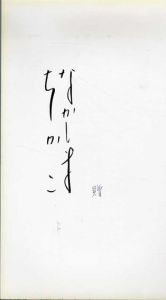 ながしま
ちかこ
贈